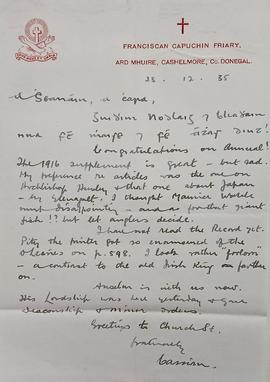 FRANCISCAN CAPUCHIN FRIARY,
ARD MHUIRE, CASHELMORE, Co. DONEGAL.
28. 12. 35
A Seanáin, a cara,
Guidim Nodlaig &
Congratulations on Annual!
The 1916 supplement is great – but sad.
My preference re articles was the one on
Archbishop & that one about Japan
– by . I thought Maurice Walsh
most disappointing – and as for that giant
fish!? but let anglers decide.
I have not read the Record yet.
Pity the printer got so enamoured the
on p. 898. I look rather "forlorn"
– a contrast to the old Irish King on farther
on.
Anselm is with us now.
His Lordship was here yesterday & gave
Deaconship & Minor Orders.
Greetings to Church St.
fraternally
Cassian.